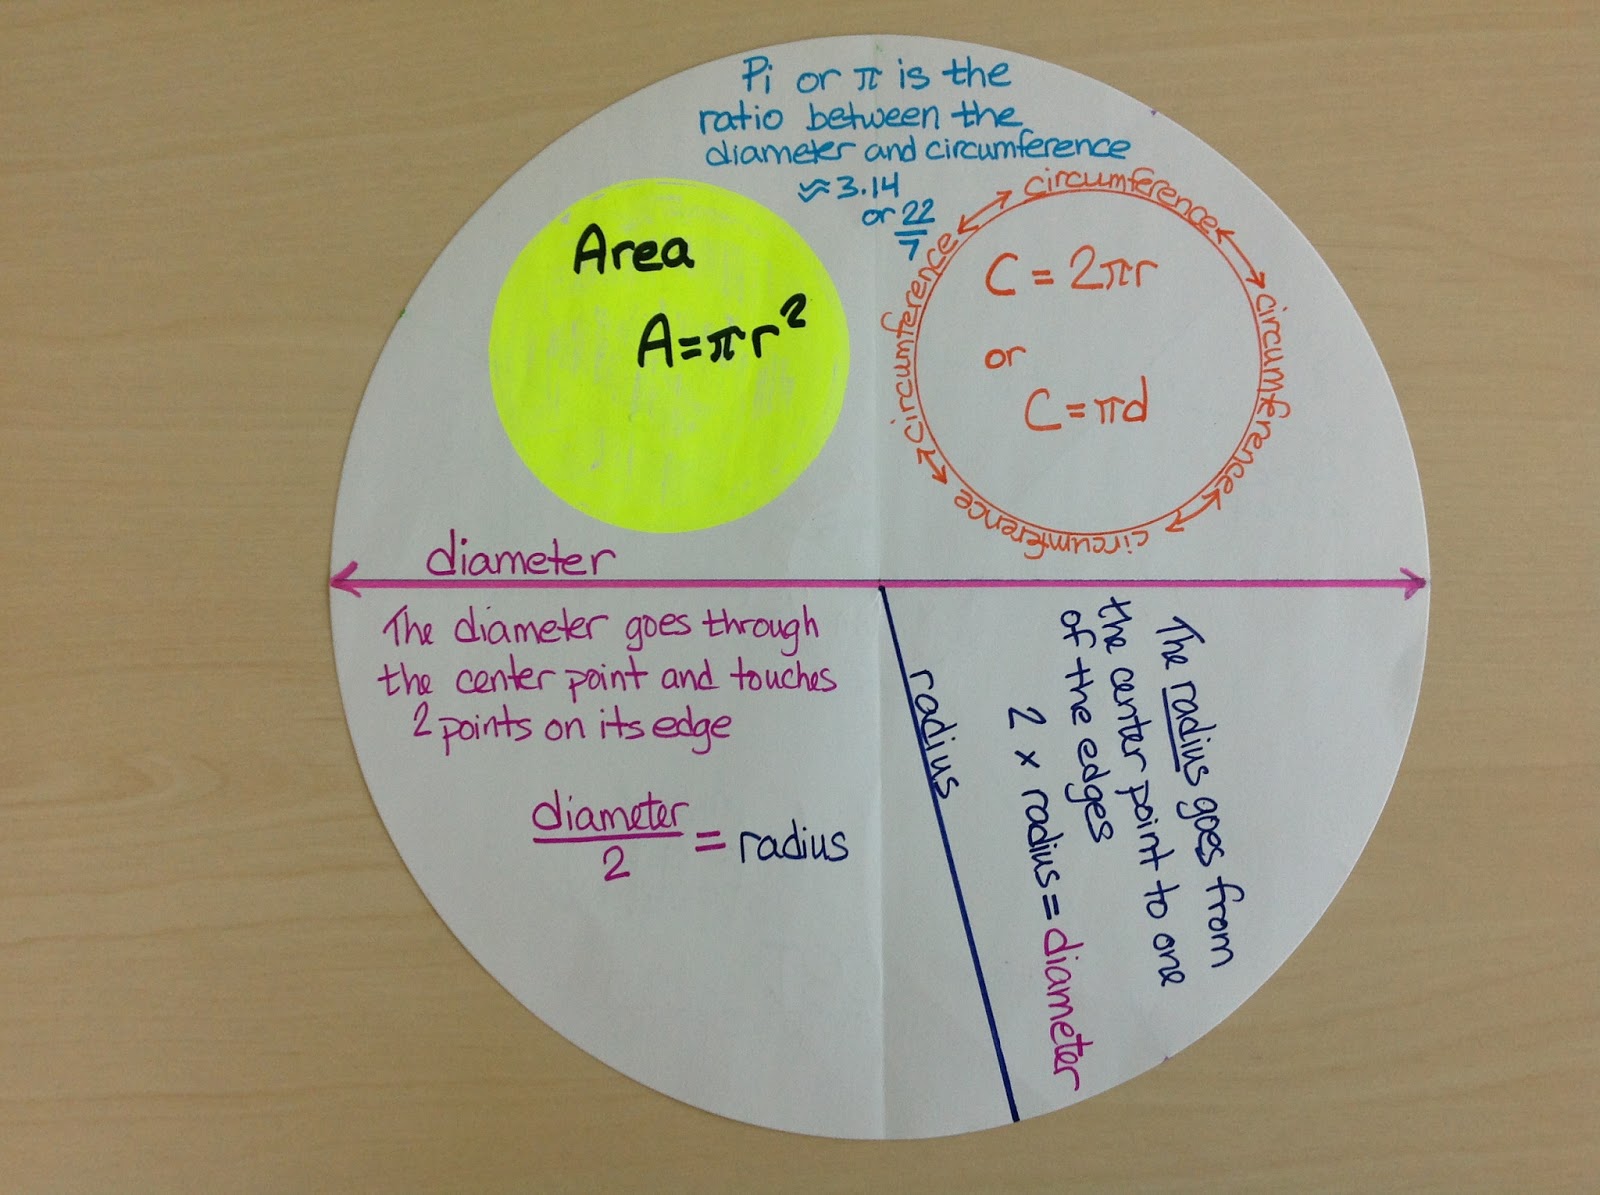 Pi or π is the
ratio between the
diameter and circumference
≈ 3.14
or 22/7
Area
A=πr²
circumference
circumference
circumference
circumference
C = 2πr
or
C = πd
diameter
The diameter goes through
the center point and touches
2 points on its edge
diameter/2 = radius
radius
The radius goes from
the center point to one
of the edges
2 × radius = diameter